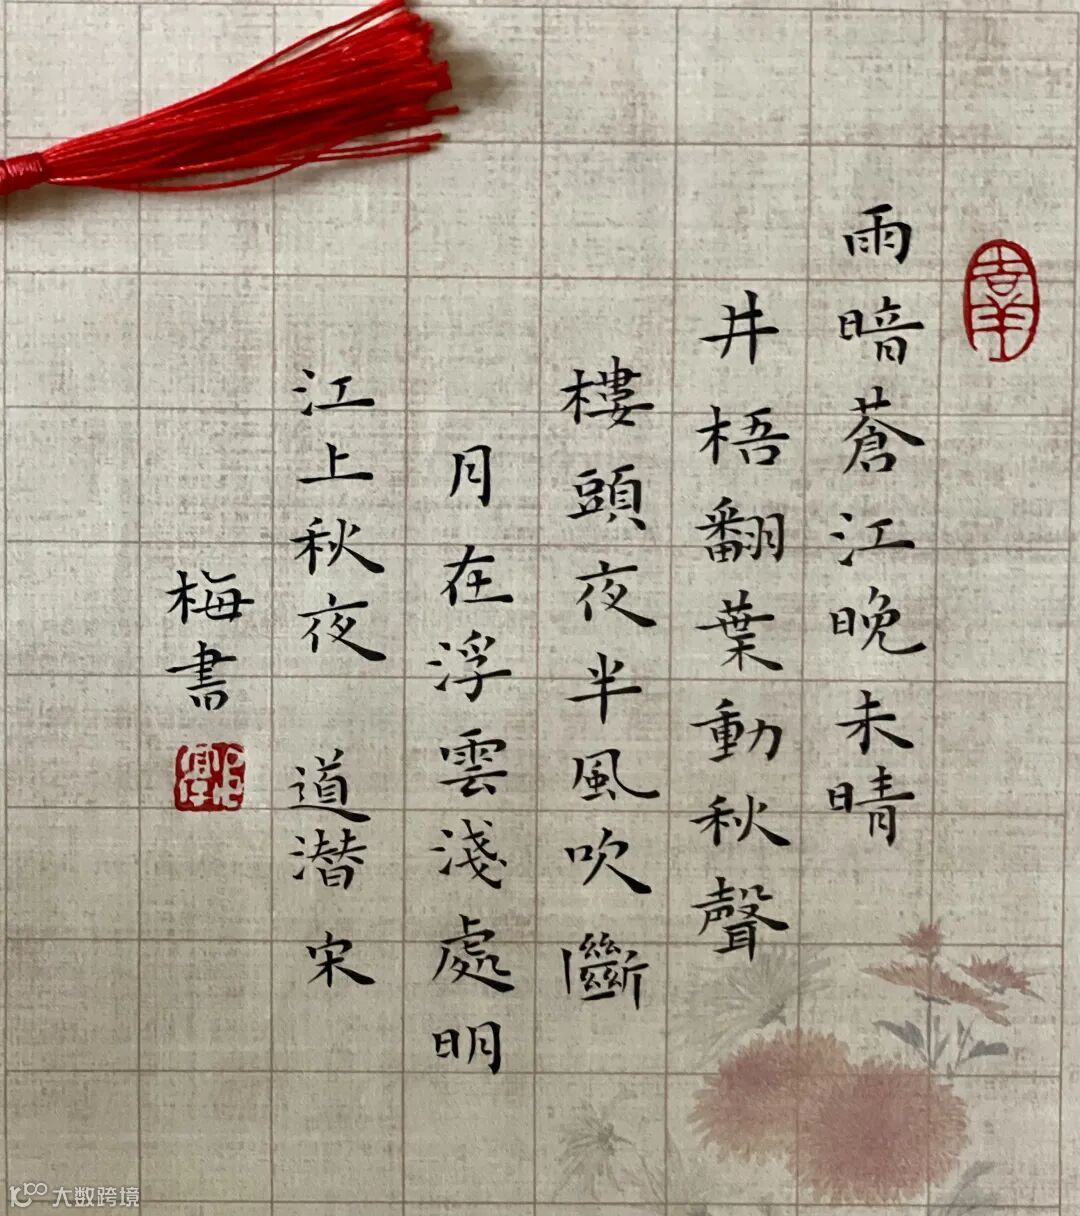 雨暗蒼江晚未晴
井梧翻葉動秋聲
樓頭夜半風吹斷
月在浮雲淺處明
江上秋夜 道潛 宋
梅書
大数跨境